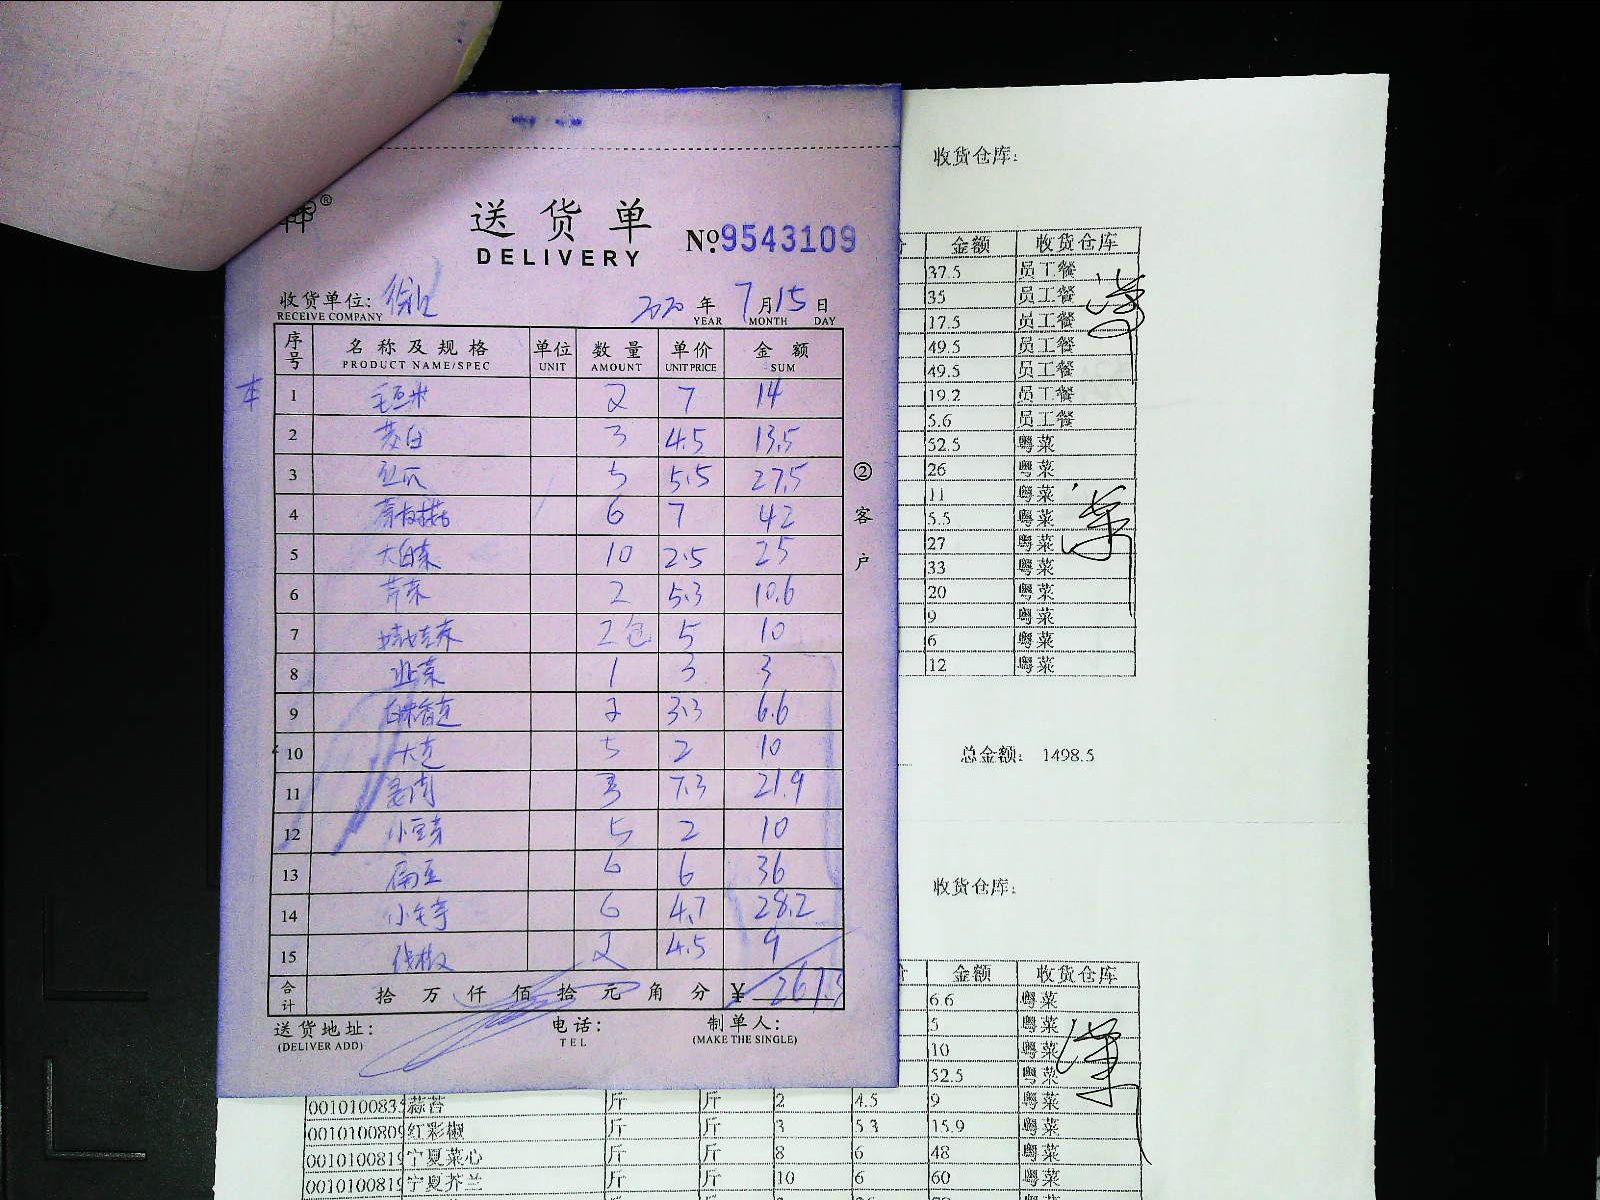 送货单
DELIVERY
No.9543109
收货单位:
RECEIVE COMPANY
2020 年 7 月 15 日
YEAR MONTH DAY
序号 名称及规格 单位 数量 单价 金额
PRODUCT NAME/SPEC UNIT AMOUNT UNIT PRICE SUM
本
1 毛豆米 2 7 14
2 茭白 3 4.5 13.5
3 5 5.5 27.5
4 6 7 42
5 大白菜 10 2.5 25
6 芹菜 2 5.3 10.6
7 娃娃菜 2包 5 10
8 韭菜 1 3 3
9 2 3.3 6.6
10 5 2 10
11 3 7.3 21.9
12 小豆芽 5 2 10
13 扁豆 6 6 36
14 小毛芋 6 4.7 28.2
15 2 4.5 9
合计 拾万仟佰拾元角分 ¥ 267.3
送货地址: 电话: 制单人:
(DELIVER ADD) TEL (MAKE THE SINGLE)
②客户
收货仓库:
金额 收货仓库
37.5 员工餐
35 员工餐
17.5 员工餐
49.5 员工餐
49.5 员工餐
19.2 员工餐
5.6 员工餐
52.5 粤菜
26 粤菜
11 粤菜
5.5 粤菜
27 粤菜
33 粤菜
20 粤菜
9 粤菜
6 粤菜
12 粤菜
总金额: 1498.5
收货仓库:
金额 收货仓库
6.6 粤菜
5 粤菜
10 粤菜
52.5 粤菜
001010083 蒜苔 斤 斤 2 4.5 9 粤菜
001010080 红彩椒 斤 斤 3 5.3 15.9 粤菜
001010081 宁夏菜心 斤 斤 8 6 48 粤菜
001010081 宁夏芥兰 斤 斤 10 6 60 粤菜